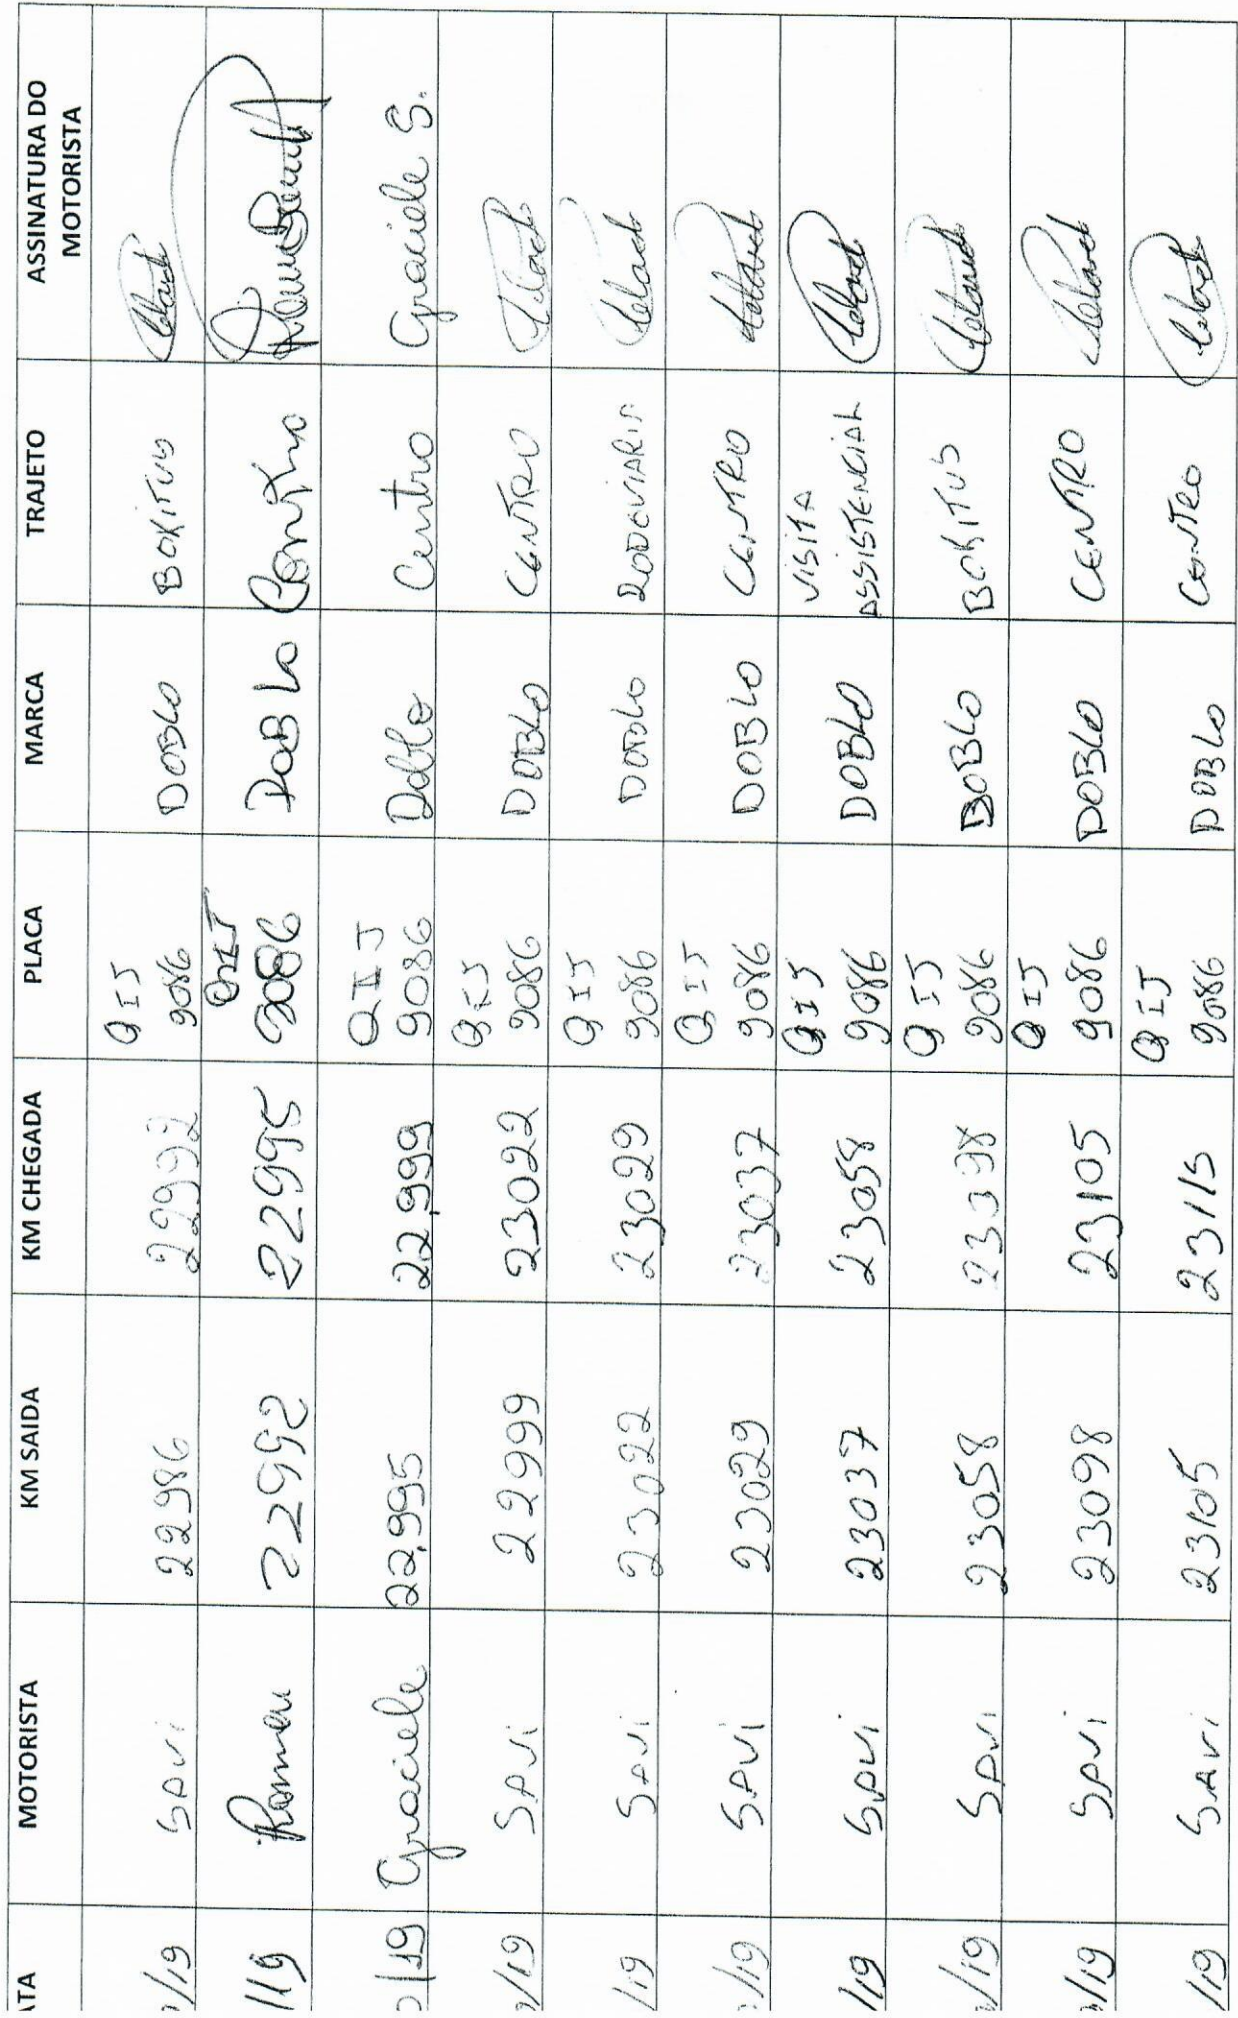 ATA MOTORISTA KM SAIDA KM CHEGADA PLACA MARCA TRAJETO ASSINATURA DO MOTORISTA
/19 SAVI 22986 22992 QIJ 9086 DOBLO BOKITUS
/19 Romeu 22992 22995 QIJ 9086 DOBLO
/19 Graciele 22.995 22.999 QIJ 9086 Doblo Centro Graciele S.
/19 SAVI 22999 23022 QIJ 9086 DOBLO CENTRO
/19 SAVI 23022 23029 QIJ 9086 DOBLO RODOVIARIA
/19 SAVI 23029 23037 QIJ 9086 DOBLO CENTRO
/19 SAVI 23037 23058 QIJ 9086 DOBLO VISITA ASSISTENCIAL
/19 SAVI 23058 23098 QIJ 9086 DOBLO BOKITUS
/19 SAVI 23098 23105 QIJ 9086 DOBLO CENTRO
/19 SAVI 23105 23115 QIJ 9086 DOBLO CENTRO